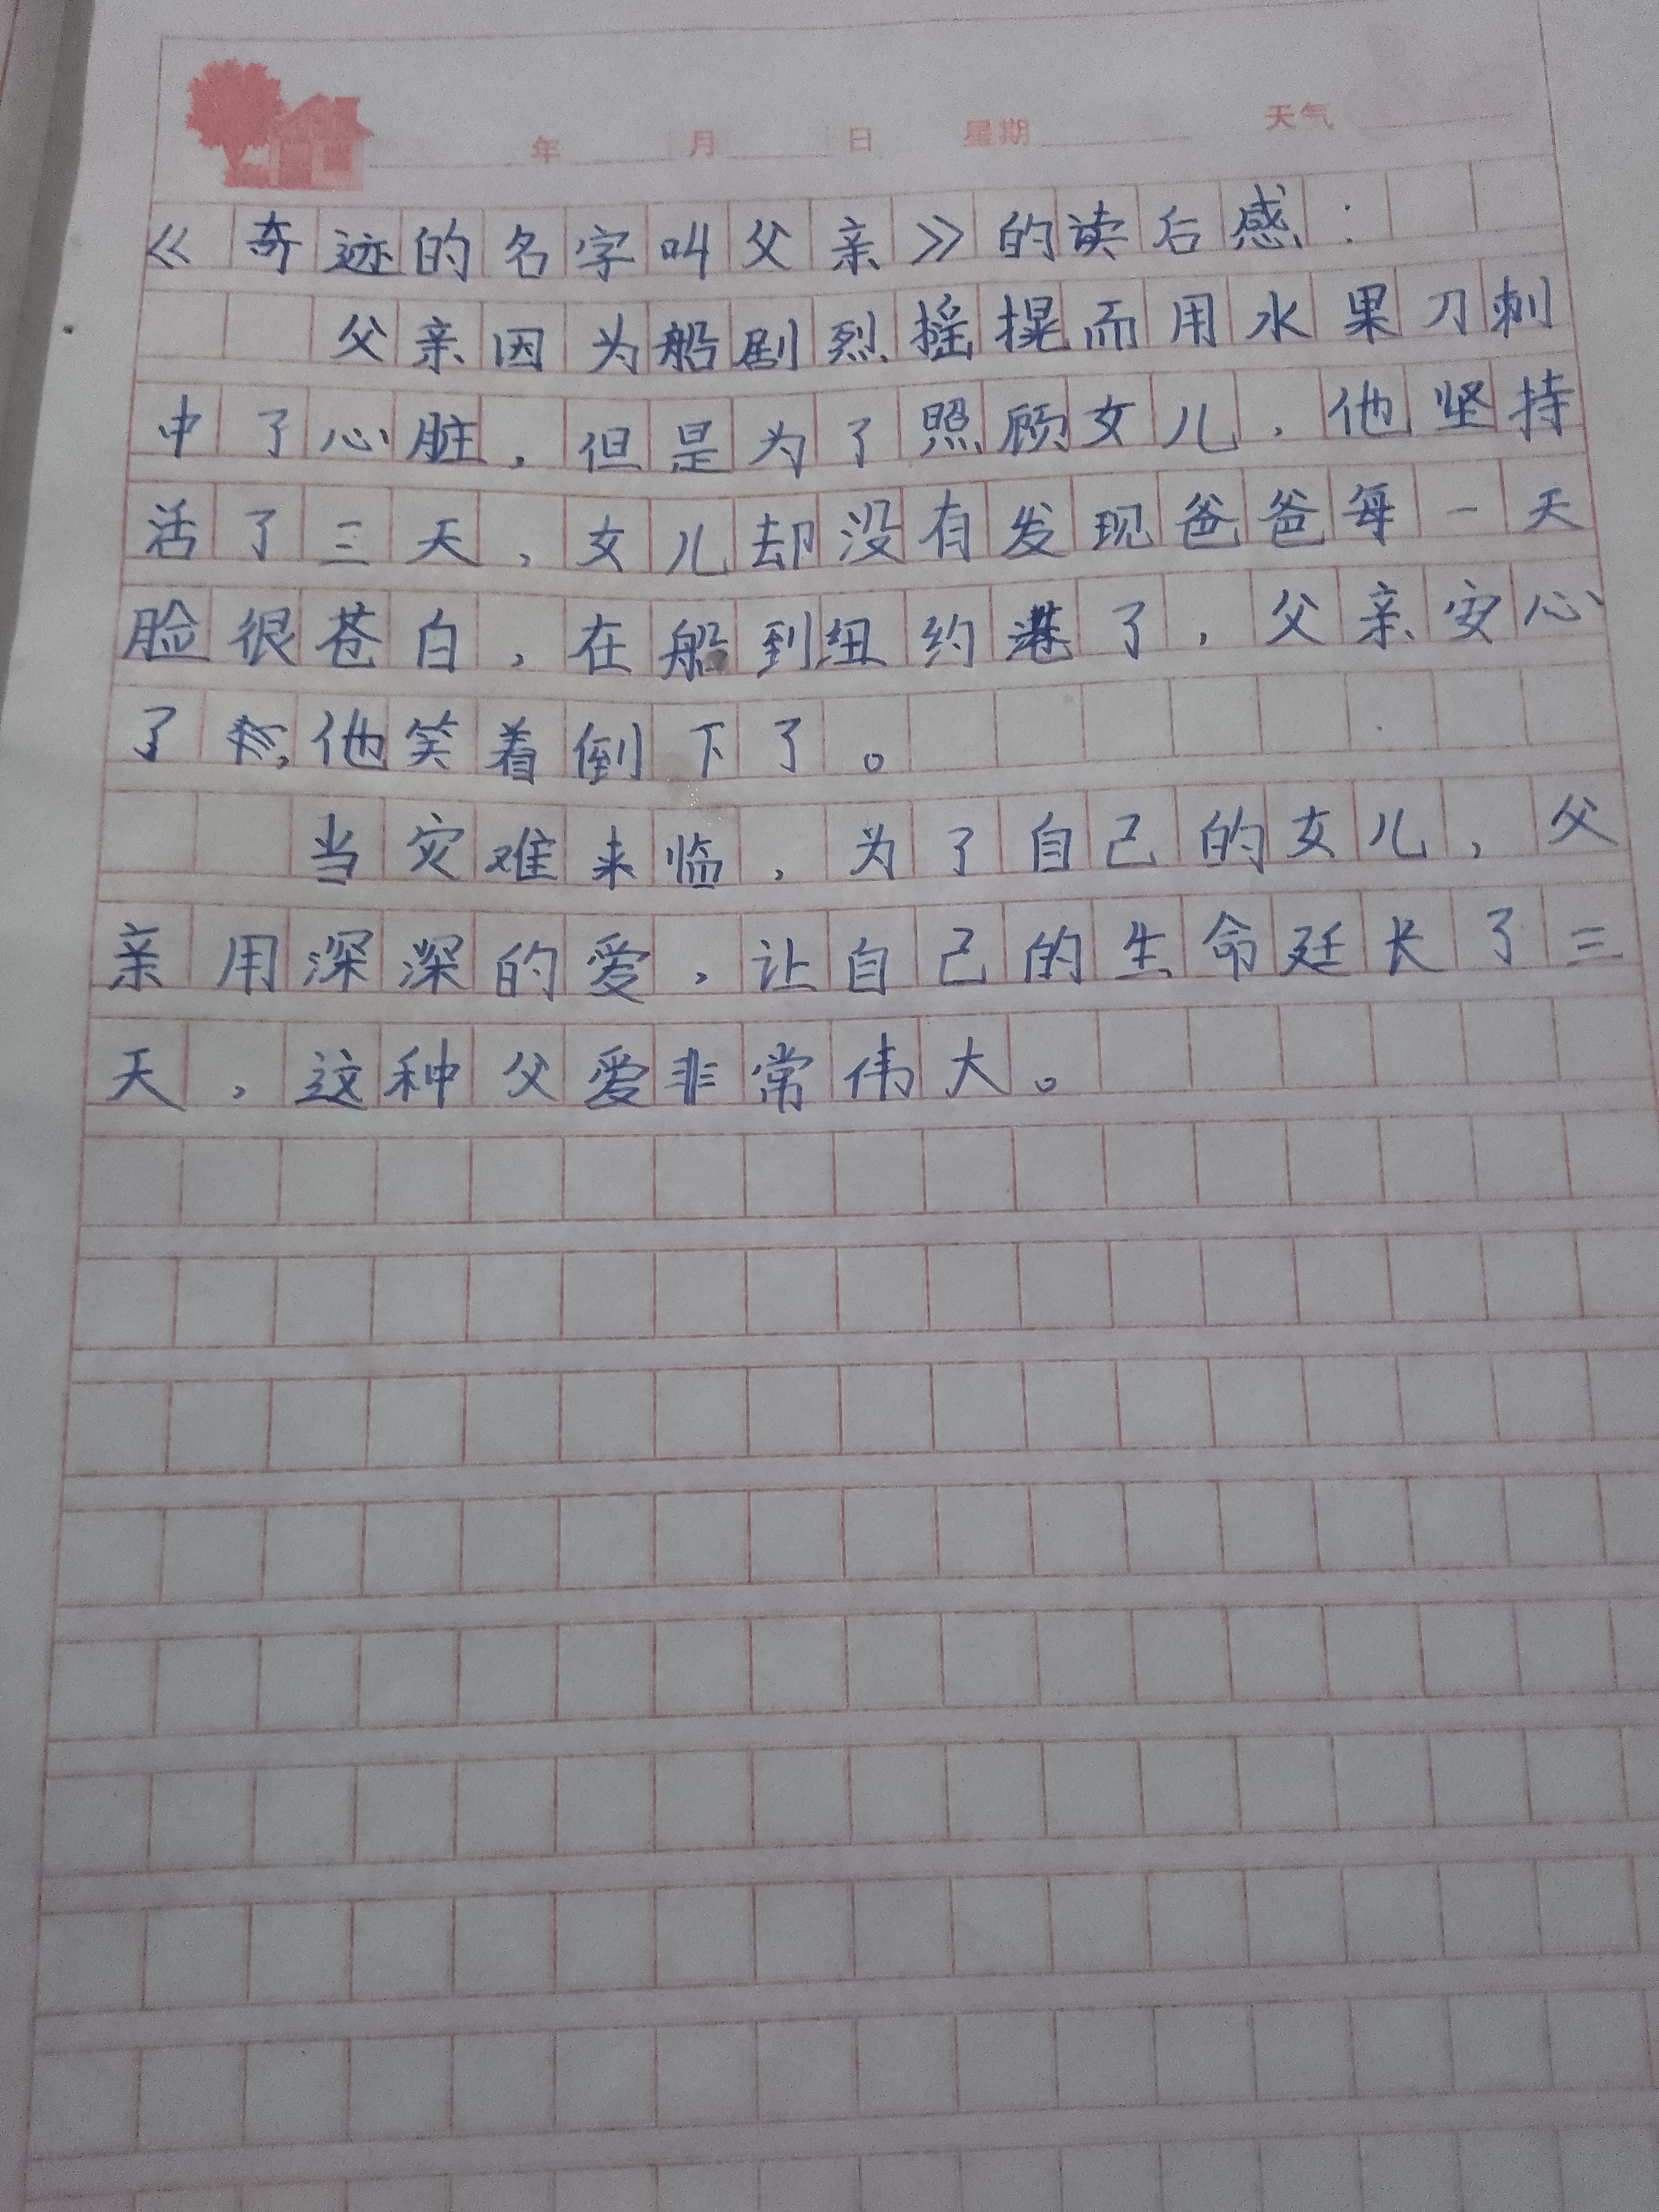 年 月 日 星期 天气
《奇迹的名字叫父亲》的读后感：
父亲因为船剧烈摇摆而用水果刀刺
中了心脏，但是为了照顾女儿，他坚持
活了三天，女儿却没有发现爸爸每一天
脸很苍白，在船到纽约港了，父亲安心
了，他笑着倒下了。
当灾难来临，为了自己的女儿，父
亲用深深的爱，让自己的生命延长了三
天，这种父爱非常伟大。